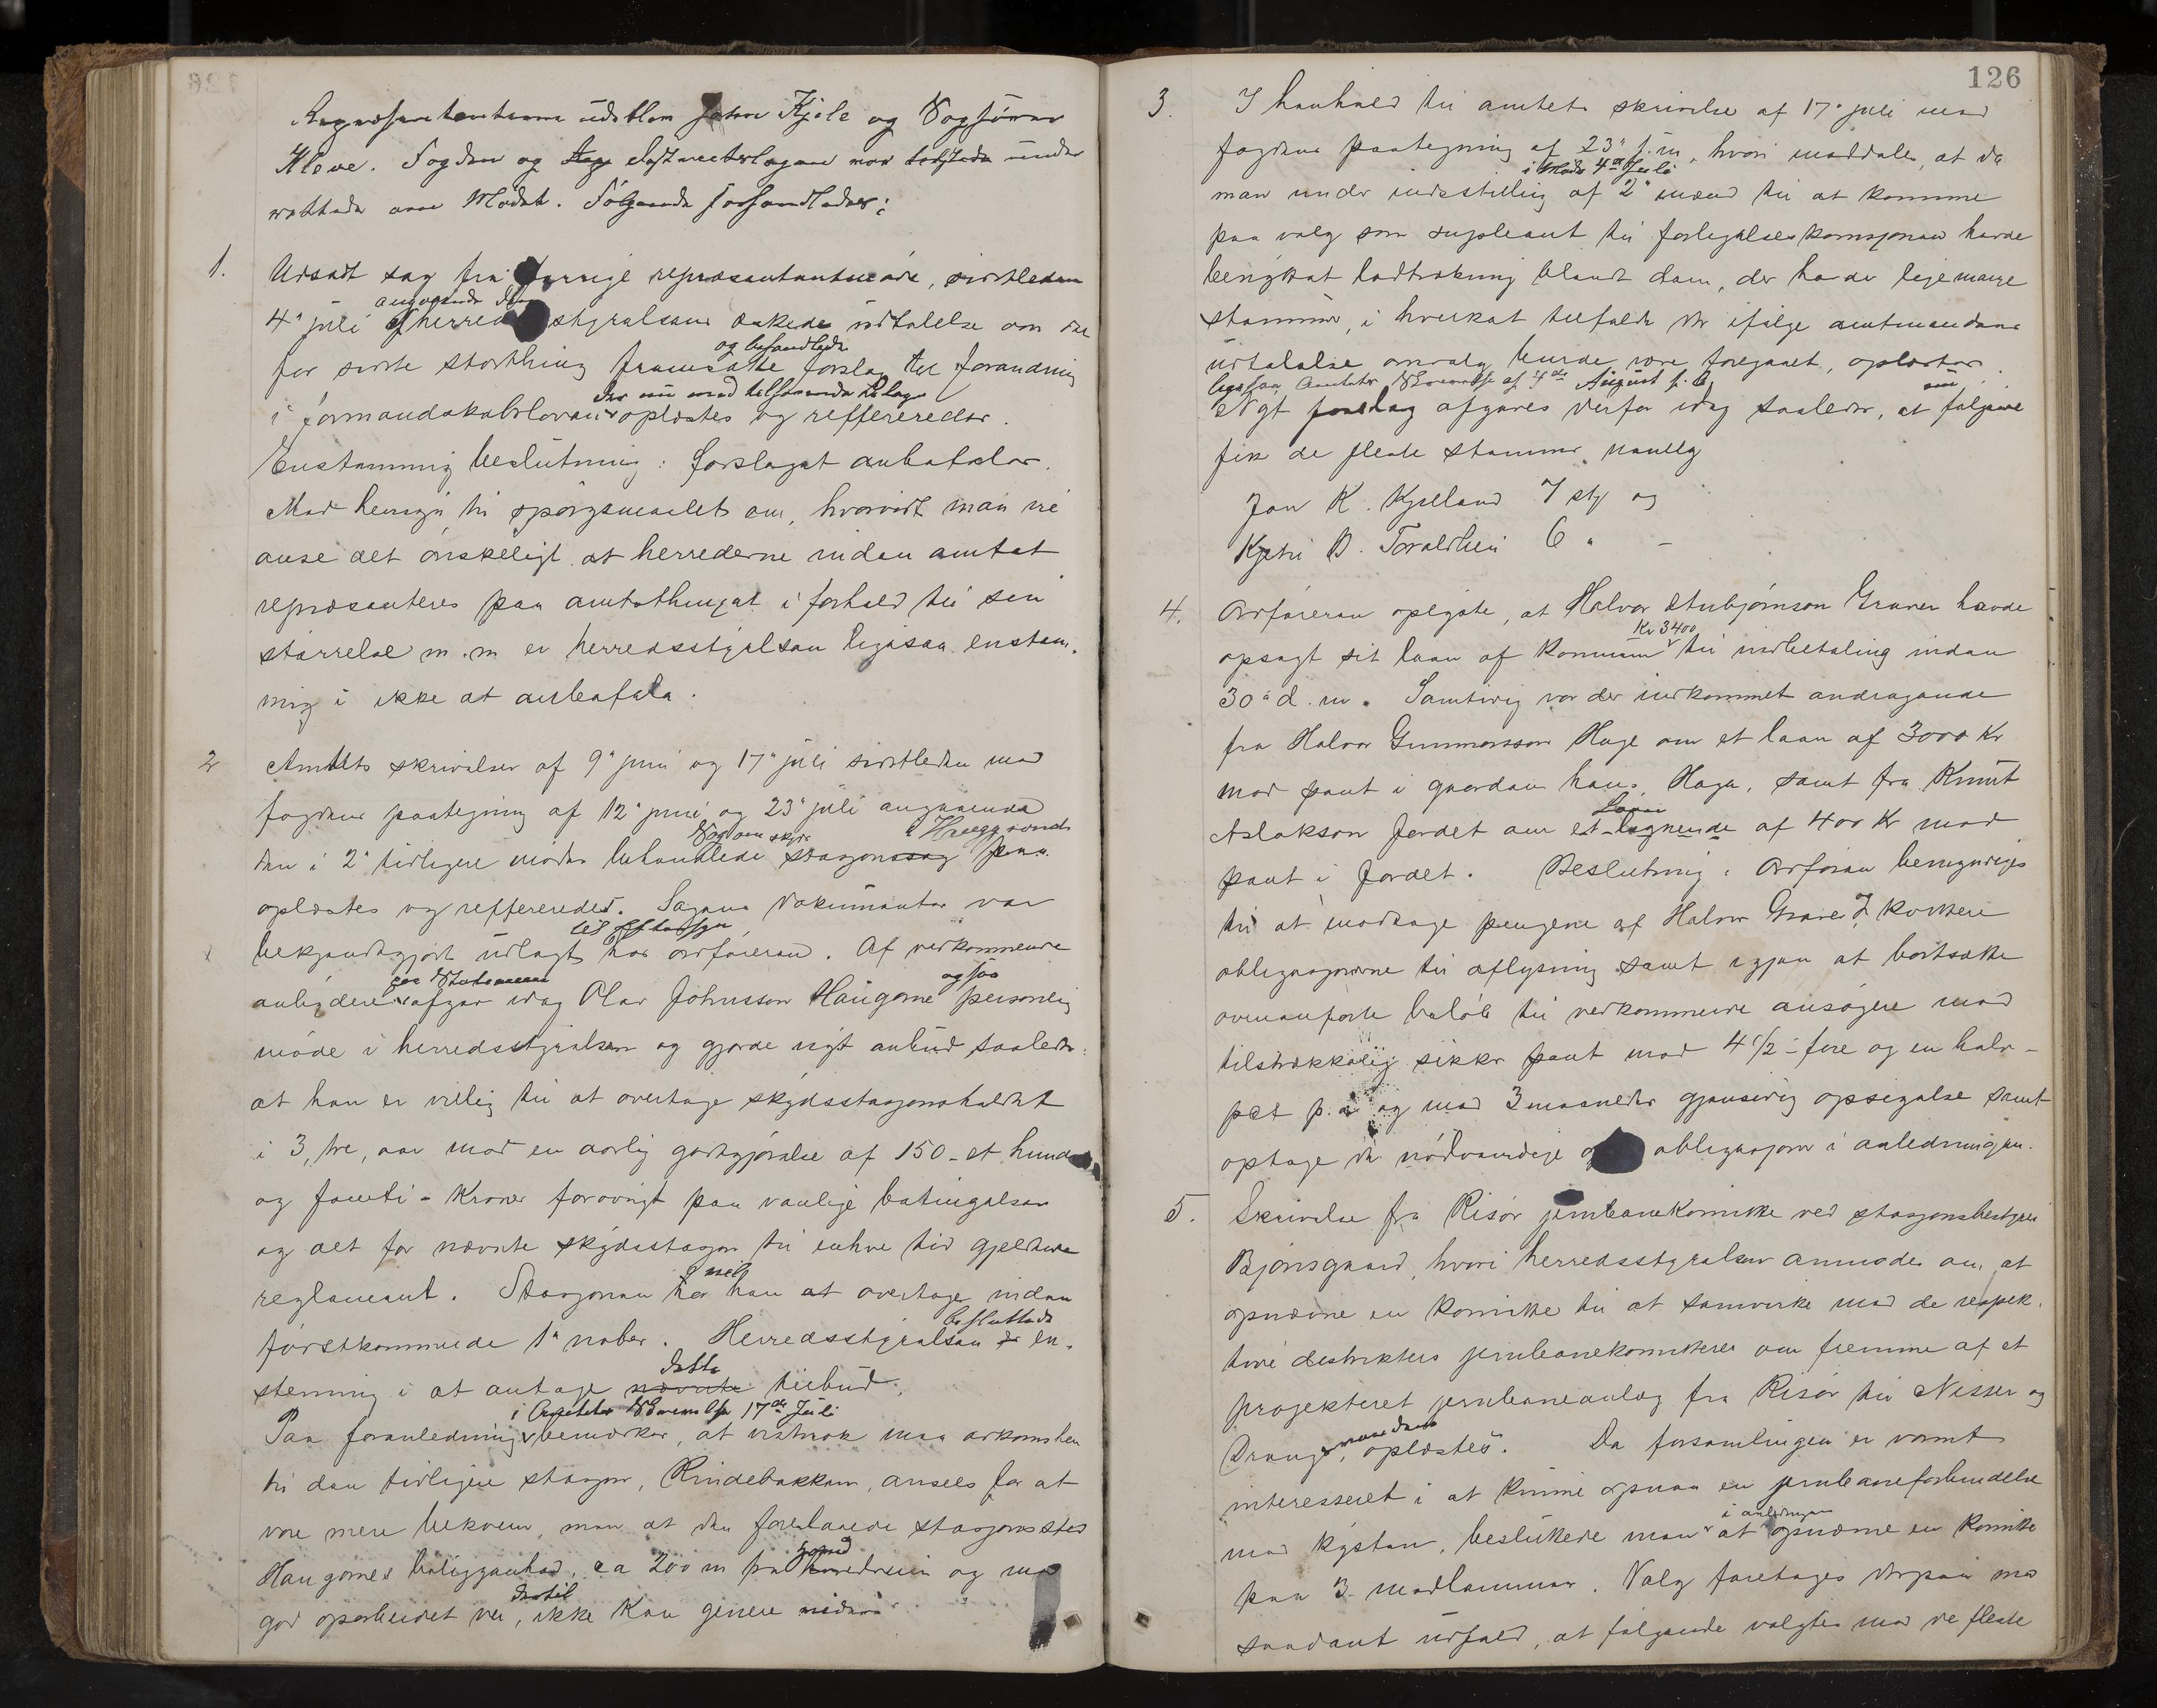 Repræsentanterne udeblev John Kjile og Vogsørmer
Kleve. Fogden og Lostmesterlagene var tilstede under
rettede ove Mødet. Følgende forhandledes:
1. Udsadt sag fra forrige repræsentantmøde, sidstleden
angaaende den
4de juli af herredsstyrelsens ønskede udtalelse om det
og behandlede
for sidste storthing fremsatte forslag til forandring
der nu med tilhørende bilag
i formandskabsloven oplæstes og reffereredes.
Enstemmig beslutning: forslaget anbefales.
Med hensyn til spørgsmaalet om, hvorvidt man vil
anse det ønskeligt at herrederne inden amtet
repræsenteres paa amtsthinget i forhold til sin
størrelse m.m er herredsstyrelsen ligesaa enstem-
mig i ikke at anbefala.
2 Amtets skrivelser af 9de juni og 17de juli sidstleden med
fogdens paategning af 12de juni og 23de juli angaaende
Sag om skyds i Heegg sund
den i 2de tidligere møder behandlede stasjonssag paa
oplæstes og reffereredes. Sagens dokumenter var
til eftersyn
bekjendtgjort udlagt hos ordføreren. Af vedkommende
anbydere afgav idag Olav Johnsson Haugome personlig
ogsaa
møde i herredsstyrelsen og gjorde nyt anbud saaledes:
at han er villig til at overtage skydsstasjonsholdet
i 3, tre, aar mod en aarlig godtgjørelse af 150 - et hundre
og femti - Kroner forøvrigt paa vanlige betingelser
og det for nævnte skydsstasjon til enhver tid gjeldene
reglement. Stasjonen har han at overtage inden
førstkommende 1ste novber. Herredsstyrelsen er en-
besluttede
stemmig i at antage nævnte tilbud.
dette
i Amtets Skrivelse 17de Juli
Paa foranledning bemærkes, at vistnok maa adkomsten
til den tidligere stasjon, Rindebakken, ansees for at
være mere bekvem, men at den foreslaaede stasjonssted
Haugomes beliggenhed, ca 200 m fra hovedveien og med
god oparbeidet vei, ikke kan genere videre
dertil
126
3. I henhold til amtets skrivelse af 17de juli med
fogdens paategning af 23de s.m., hvori meddeles, at da
i Møde 4de Juli
man under indstilling af 2de mænd til at komme
paa valg som supleant til forligelseskomisjonen havde
benyttet lodtrækning blandt dem, der havde lige mange
stemmer, i hvilket tilfælde der ifølge amtmandens
udtalelse omvalg burde være foregaaet, oplæstes
ligesaa Amtets Skrivelse af 4de August s. A.
Nyt forslag afgaves derfor idag saaledes, at følgende
fik de fleste stemmer nemlig
Jon K. Kjelland 7 st og
Kjetil D. Toraldlien 6 " -
4. Ordføreren oplyste, at Halvor Stubjørnson Graver havde
Kr 3400
opsagt sit laan af kommunen til indbetaling inden
30te d.m. Samtidig var der indkommet andragende
fra Halvor Gunnarsson Hage om et laan af 3000 Kr
mod pant i gaarden hans, Hagen, samt fra Knut
Laan
Aslakson Jordet om et lignende af 400 Kr mod
pant i Jordet. Beslutning: Ordføren bemyndiges
til at modtage pengene af Halvor Graver, kvittere
obligasjonerne til aflysning samt igjen at bortsætte
ovenanførte beløb til vedkommende ansøgere mod
tilstrækkelig sikker pant mod 4 1/2 - fire og en halv -
pct p.a og med 3 maaneder gjensidig opsigelse samt
optage de nødvendige obligasjoner i anledningen.
5. Skrivelse fra Risør jernbanekomitte ved stasjonsbestyrer
Bjørnsgaard, hvori herredsstyrelsen anmodes om at
opnævne en komitte til at samvirke med de respek-
tive distrikters jernbanekomitteer om fremme af et
projekteret jernbaneanlæg fra Risør til Nisser og
Drange, oplæstes. Da forsamlingen er varmt
interesseret i at kunne opnaa en jernbaneforbindelse
i anledningen
med kysten, besluttede man at opnævne en komitte
paa 3 medlemmer. Valg foretages derpaa med
saadant udfald, at følgende valgtes med de fleste